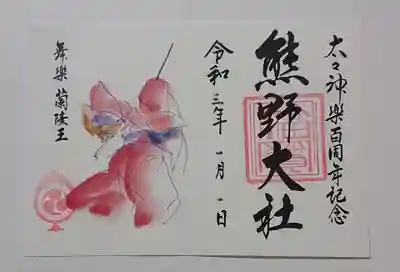 太々神樂百周年記念
熊野大社
令和三年一月一日
舞樂 蘭陵王